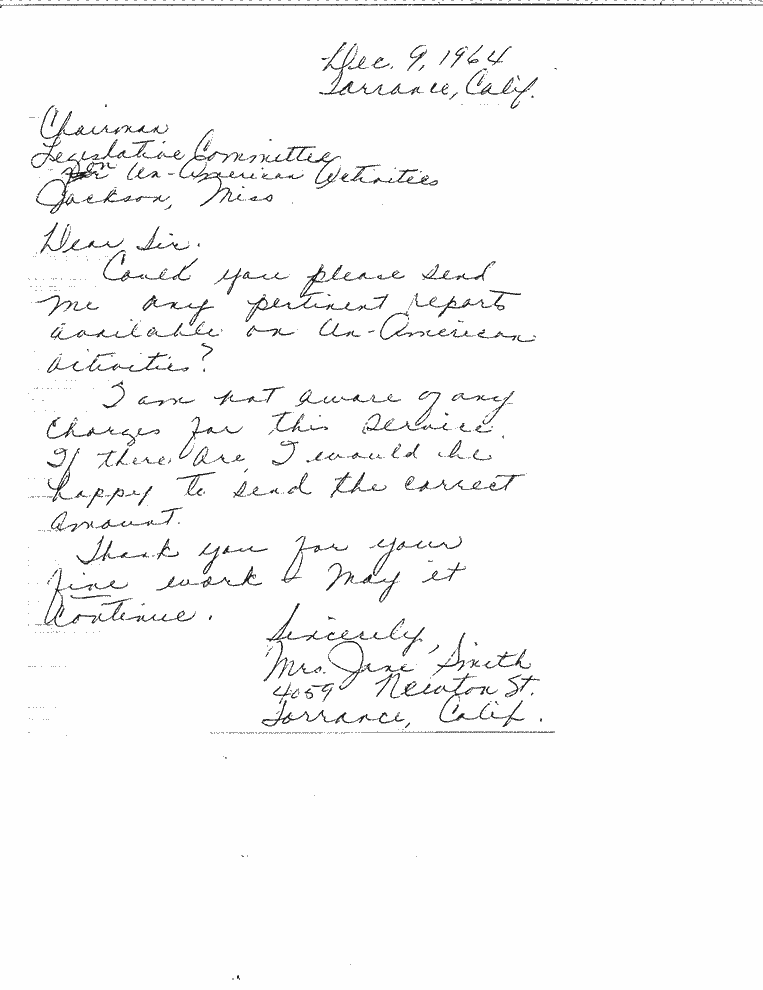 Dec. 9, 1964
Torrance, Calif.
Chairman
Legislative Committee
on Un-American Activities
Jackson, Miss
Dear Sir.
Could you please send
me any pertinent reports
available on Un-American
activities?
I am not aware of any
charges for this service.
If there are, I would be
happy to send the correct
amount.
Thank you for your
fine work & may it
continue.
Sincerely,
Mrs. Jane Smith
4059 Newton St.
Torrance, Calif.